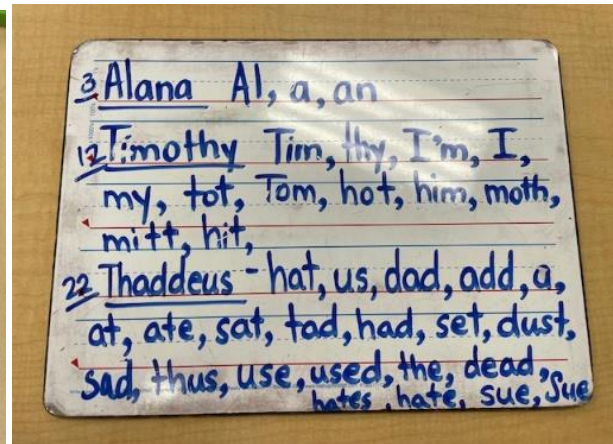 3 Alana Al, a, an
12 Timothy Tim, thy, I'm, I,
my, tot, Tom, hot, him, moth,
mitt, hit,
22 Thaddeus - hat, us, dad, add, a,
at, ate, sat, tad, had, set, dust,
sad, thus, use, used, the, dead,
hates, hate, sue, Sue